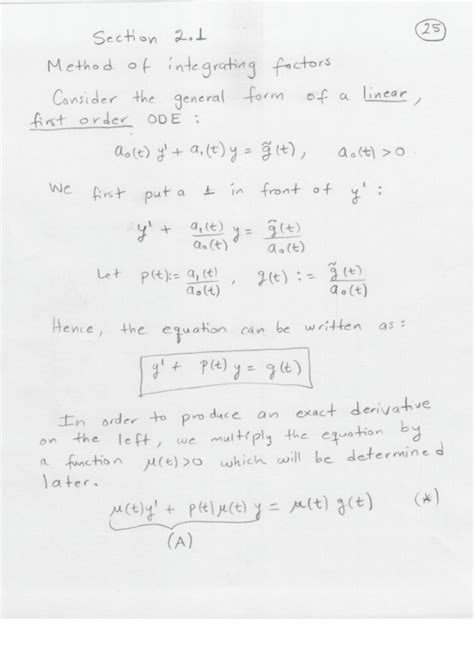 25
Section 2.1
Method of integrating factors
Consider the general form of a linear,
first order ODE :
a₀(t) y' + a₁(t) y = g̃(t), a₀(t) > 0
We first put a 1 in front of y' :
y' + a₁(t)/a₀(t) y = g̃(t)/a₀(t)
Let p(t) := a₁(t)/a₀(t) , g(t) := g̃(t)/a₀(t)
Hence, the equation can be written as :
y' + p(t) y = g(t)
In order to produce an exact derivative
on the left, we multiply the equation by
a function μ(t)>0 which will be determined
later.
μ(t)y' + p(t)μ(t) y = μ(t) g(t) (*)
(A)